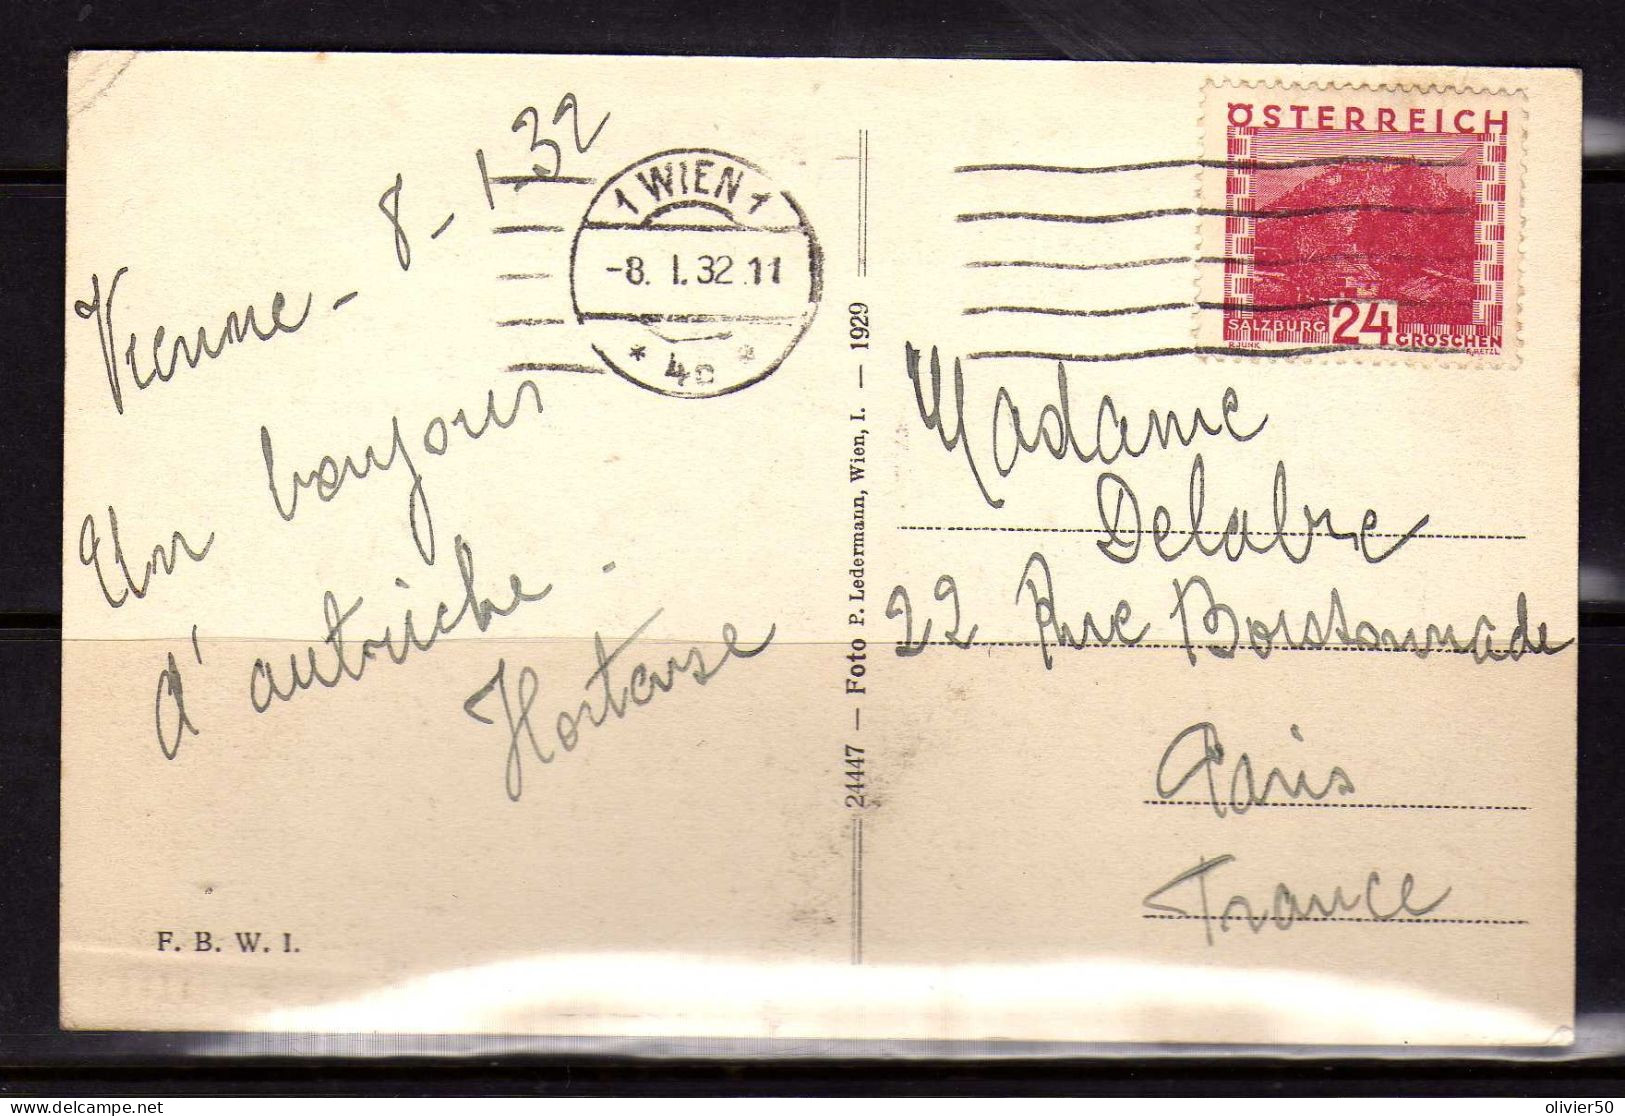 Vienne - 8 - 1 - 32
Un bonjour
d'autriche.
Hortense
F. B. W. I.
1 WIEN 1
-8. I. 32. 11
* 4c *
24447 — Foto P. Ledermann, Wien, I. — 1929
ÖSTERREICH
SALZBURG 24 GROSCHEN
R.JUNK
F.RETZL
Madame
Delabre
22 Rue Boissonnade
Paris
France
delcampe.net
olivier50